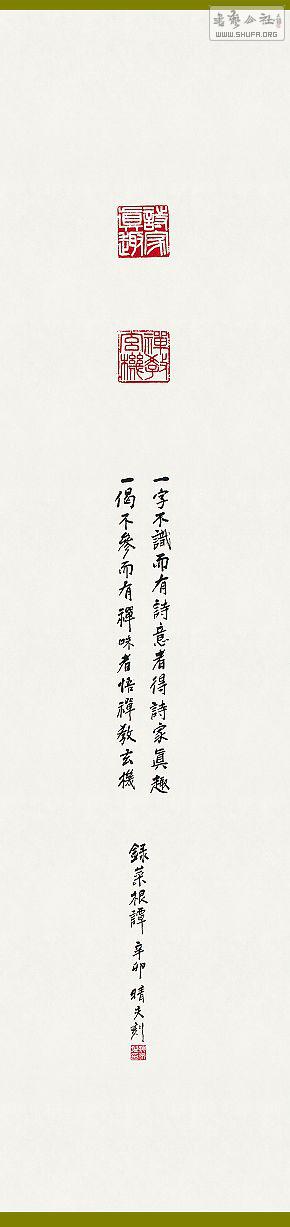 書藝公社
WWW.SHUFA.ORG
詩家真趣
禪教玄機
一字不識而有詩意者得詩家真趣
一偈不參而有禪味者悟禪教玄機
録菜根譚 辛卯 晴天刻